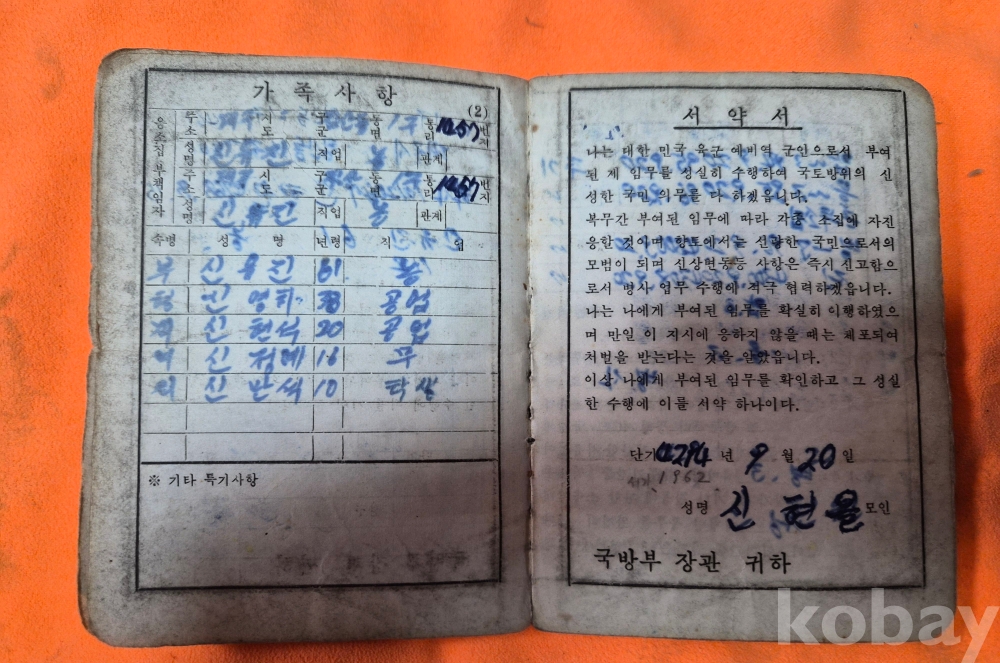 가족사항
(2)
응소집부책임자
주소 시도 구군 동면 통리 1257 번지
성명 신육진 직업 관계
주소 시도 구군 동면 통리 1257 번지
성명 신육진 직업 관계
족벙 성명 년령 직업
부 신육진 61
신영하 38 공업
신현석 20 공업
신정례 16 무
신만석 10
※ 기타 특기사항
서약서
나는 대한 민국 육군 예비역 군인으로서 부여
된 제 임무를 성실히 수행하여 국토방위의 신
성한 국민 의무를 다 하겠읍니다.
복무간 부여된 임무에 따라 각종 소집에 자진
응할 것이며 향토에서는 선량한 국민으로서의
모범이 되며 신상현동등 사항은 즉시 신고함으
로서 병사 업무 수행에 적극 협력하겠읍니다.
나는 나에게 부여된 임무를 확실히 이행하였으
며 만일 이 지시에 응하지 않을 때는 체포되여
처벌을 받는다는 것을 알았읍니다.
이상 나에게 부여된 임무를 확인하고 그 성실
한 수행에 이를 서약 하나이다.
단기 4294 년 9 월 20 일
서기 1962
성명 신현율 모인
국방부 장관 귀하
kobay